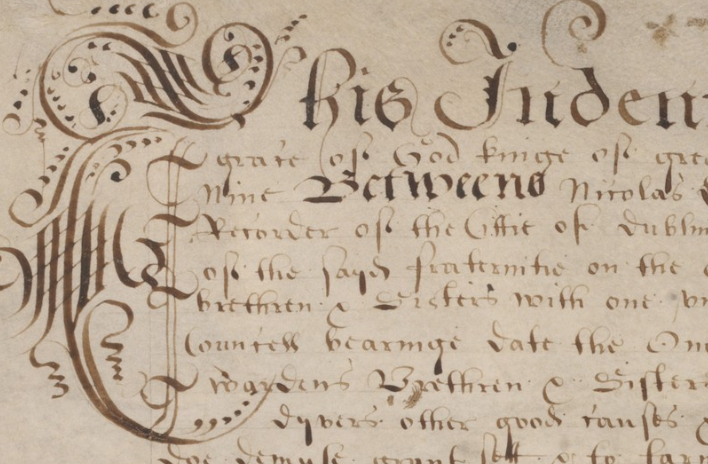 This Inden
grace of God kinge of grea
Nine Betweene Nicolas
Recorder of the Cittie of dublin
of the sayd fraternitie on the
brethren & Sisters with one
Councell bearinge date the One
wardens Brethren & Sisters
dyvers other good causes &
doe demise grant sett & to farm